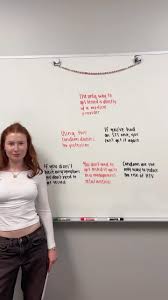 The only way to
get tested is directly
at a medical
provider
Using two
condoms doubles
the protection
If you've had
an STI once, you
can't get it again
If you don't
have any symptoms
you don't need to
get tested
You don't need to
get tested if you're
in a monogamous
relationship
Condoms are the
only way to reduce
the risk of HIV